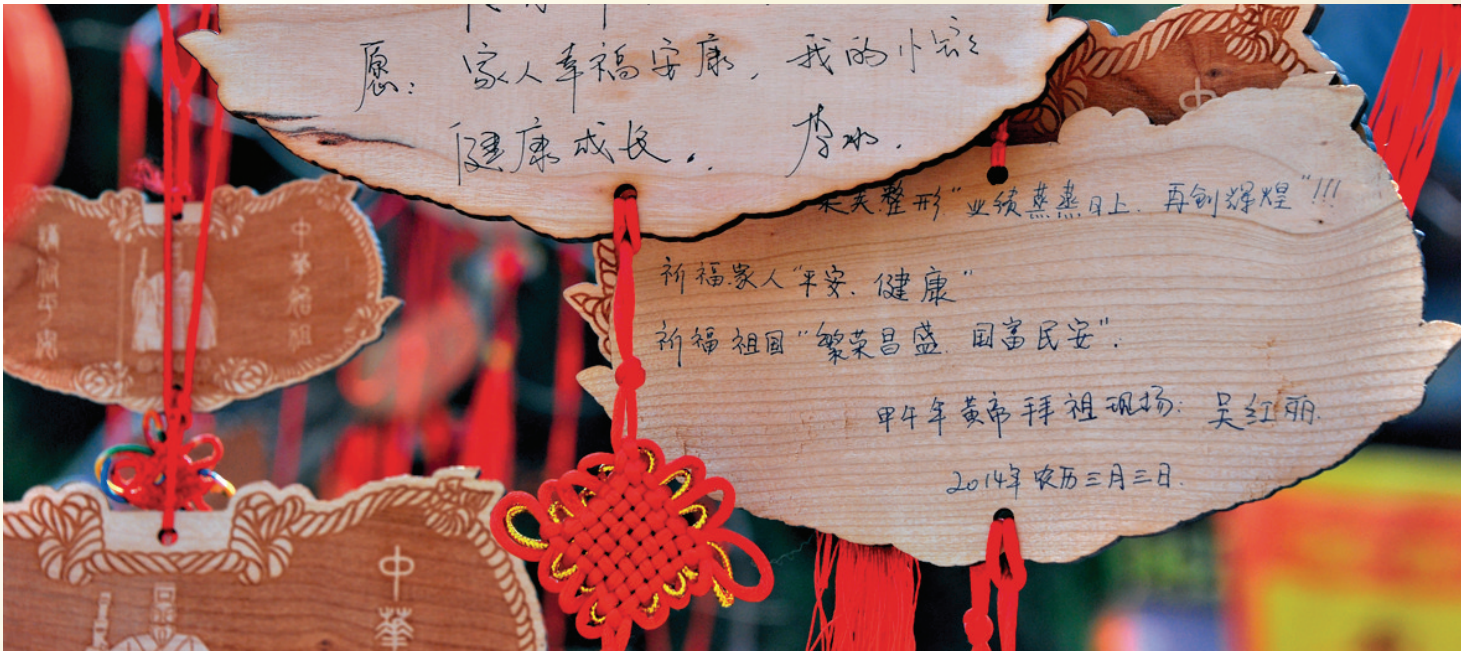 愿：家人幸福安康，我的小
健康成长。
整形"业绩蒸蒸日上，再创辉煌"!!!
祈福家人"平安、健康"
祈福祖国"繁荣昌盛 国富民安".
甲午年黄帝拜祖现场: 吴红丽.
2014年农历三月三日.
中華始祖
平安
中華
中